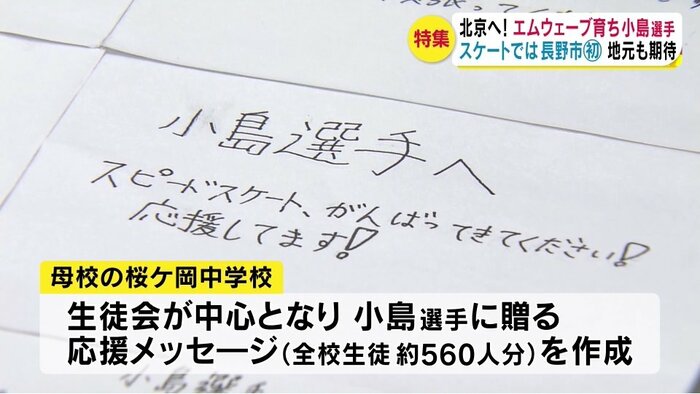 特集
北京へ！エムウェーブ育ち小島選手
スケートでは長野市㊗初 地元も期待
小島選手へ
スピードスケート、がんばってきてください!
応援してます!
母校の桜ケ岡中学校
生徒会が中心となり 小島選手に贈る
応援メッセージ（全校生徒 約560人分）を作成